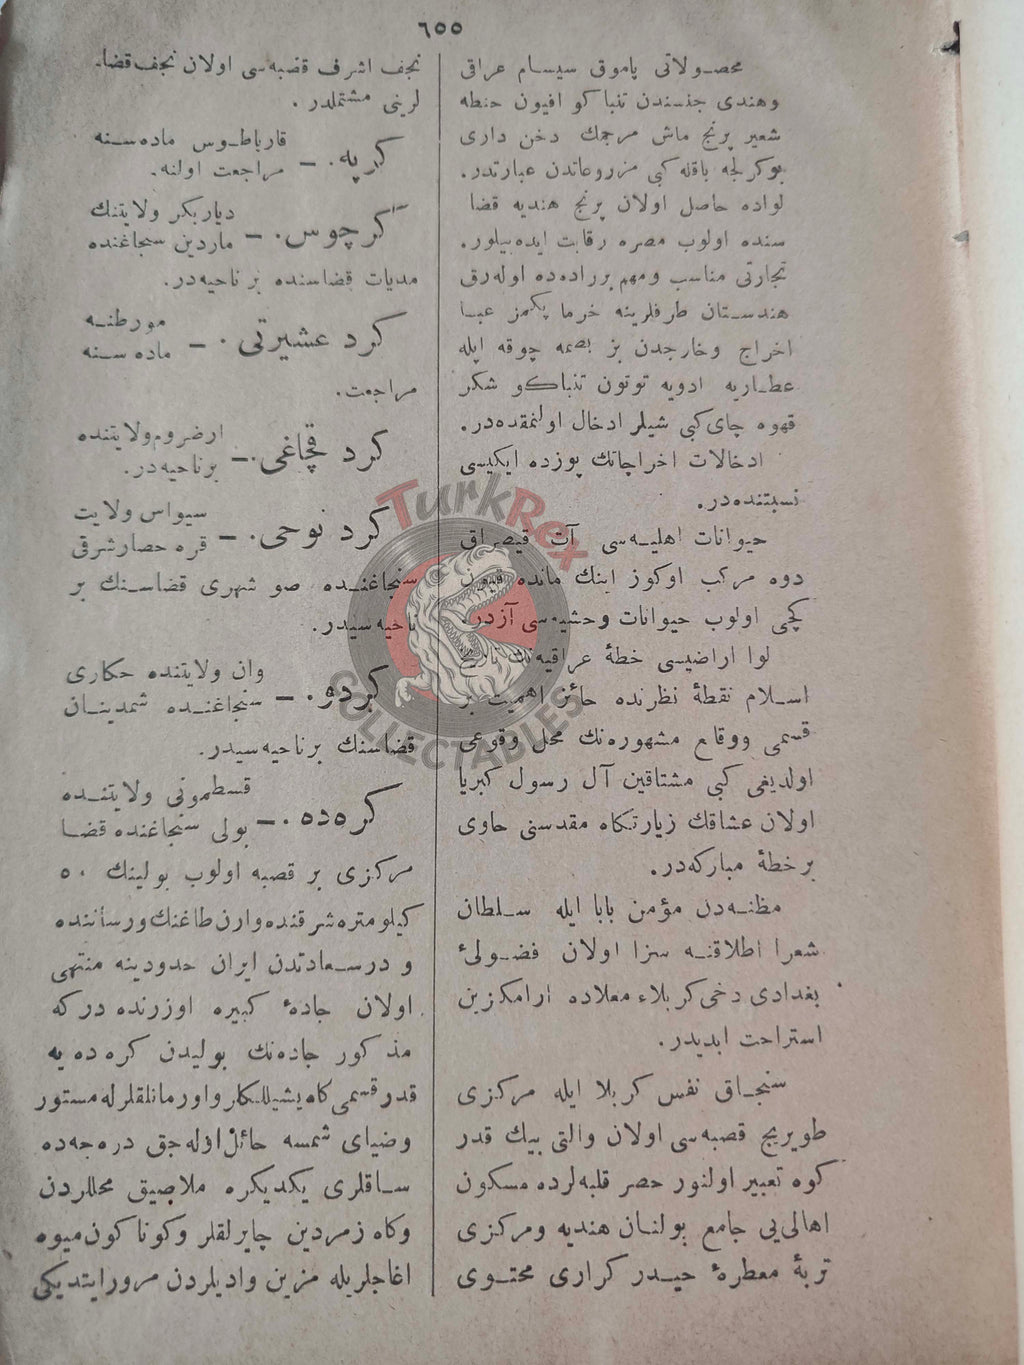 ٦٥٥
محصولاتی پاموق سیسام عراقی
وهندی جنسندن تنباکو افیون حنطه
شعیر پرنج ماش مرجمك دخن داری
بوکرلجه باقله کبی مزروعاتدن عبارتدر.
لواده حاصل اولان پرنج هندیه قضا
سنده اولوب مصره رقابت ایده بیلور.
تجارتی مناسب ومهم برراده‌ده اوله‌رق
هندستان طرفلرینه خرما پکمز عبا
اخراج وخارجدن بز بصمه چوقه ایله
عطاریه ادویه توتون تنباکو شکر
قهوه چای کبی شیلر ادخال اولنمقده‌در.
ادخالات اخراجاتك یوزده ایکیسی
نسبتنده‌در.
حیوانات اهلیه‌سی آت قیصراق
دوه مرکب اوکوز اینك مانده قیون
کچی اولوب حیوانات وحشیه‌سی آزدر.
لوا اراضیسی خطهٔ عراقیه‌نك تاریخ
اسلام نقطهٔ نظرنده حائز اهمیت بر
قسمی ووقایع مشهوره‌نك محل وقوعی
اولدیغی کبی مشتاقین آل رسول کبریا
اولان عشاقك زیارتکاه مقدسنی حاوی
برخطهٔ مبارکه‌در.
مظنه‌دن مؤمن بابا ایله سلطان
شعرا اطلاقنه سزا اولان فضولیٔ
بغدادی دخی کربلاء معلاده آرامکزین
استراحت ابدیدر.
سنجاق نفس کربلا ایله مرکزی
طویریج قصبه‌سی اولان والتی بیك قدر
کوه تعبیر اولنور حصر قلبه‌لرده مسکون
اهالی‌یی جامع بولنان هندیه ومرکزی
تربهٔ معطرهٔ حیدر کراری محتوی
نجف اشرف قصبه‌سی اولان نجف قضا-
لرینی مشتملدر.
کرپه. – قارباطوس ماده‌سنه
مراجعت اولنه.
کرچوس. – دیاربکر ولایتنك
ماردین سنجاغنده
مدیات قضاسنده بر ناحیه‌در.
کرد عشیرتی. – مورطنه
ماده‌سنه
مراجعت.
کرد قچاغی. – ارضروم ولایتنده
برناحیه‌در.
کرد نوحی. – سیواس ولایت
قره حصار شرقی
سنجاغنده صو شهری قضاسنك بر
ناحیه‌سیدر.
کردو. – وان ولایتنده حکاری
سنجاغنده شمدینان
قضاسنك برناحیه‌سیدر.
کره‌ده. – قسطمونی ولایتنده
بولی سنجاغنده قضا
مرکزی بر قصبه اولوب بولینك ٥٠
کیلومتره شرقنده وارن طاغنك ورسأننده
و درسعادتدن ایران حدودینه منتهی
اولان جادهٔ کبیره اوزرنده درکه
مذکور جاده‌نك بولیدن کره‌ده‌یه
قدر قسمی کاه یشیللکلر واورمانلقلرله مستور
وضیای شمسه حائل اوله‌جق درجه‌ده
ساقلری یکدیکره ملاصق محللردن
وکاه زمردین چایرلقلر وکوناکون میوه
اغاجلریله مزین وادیلردن مرور ایتدیکی
TurkRex
COLLECTABLES